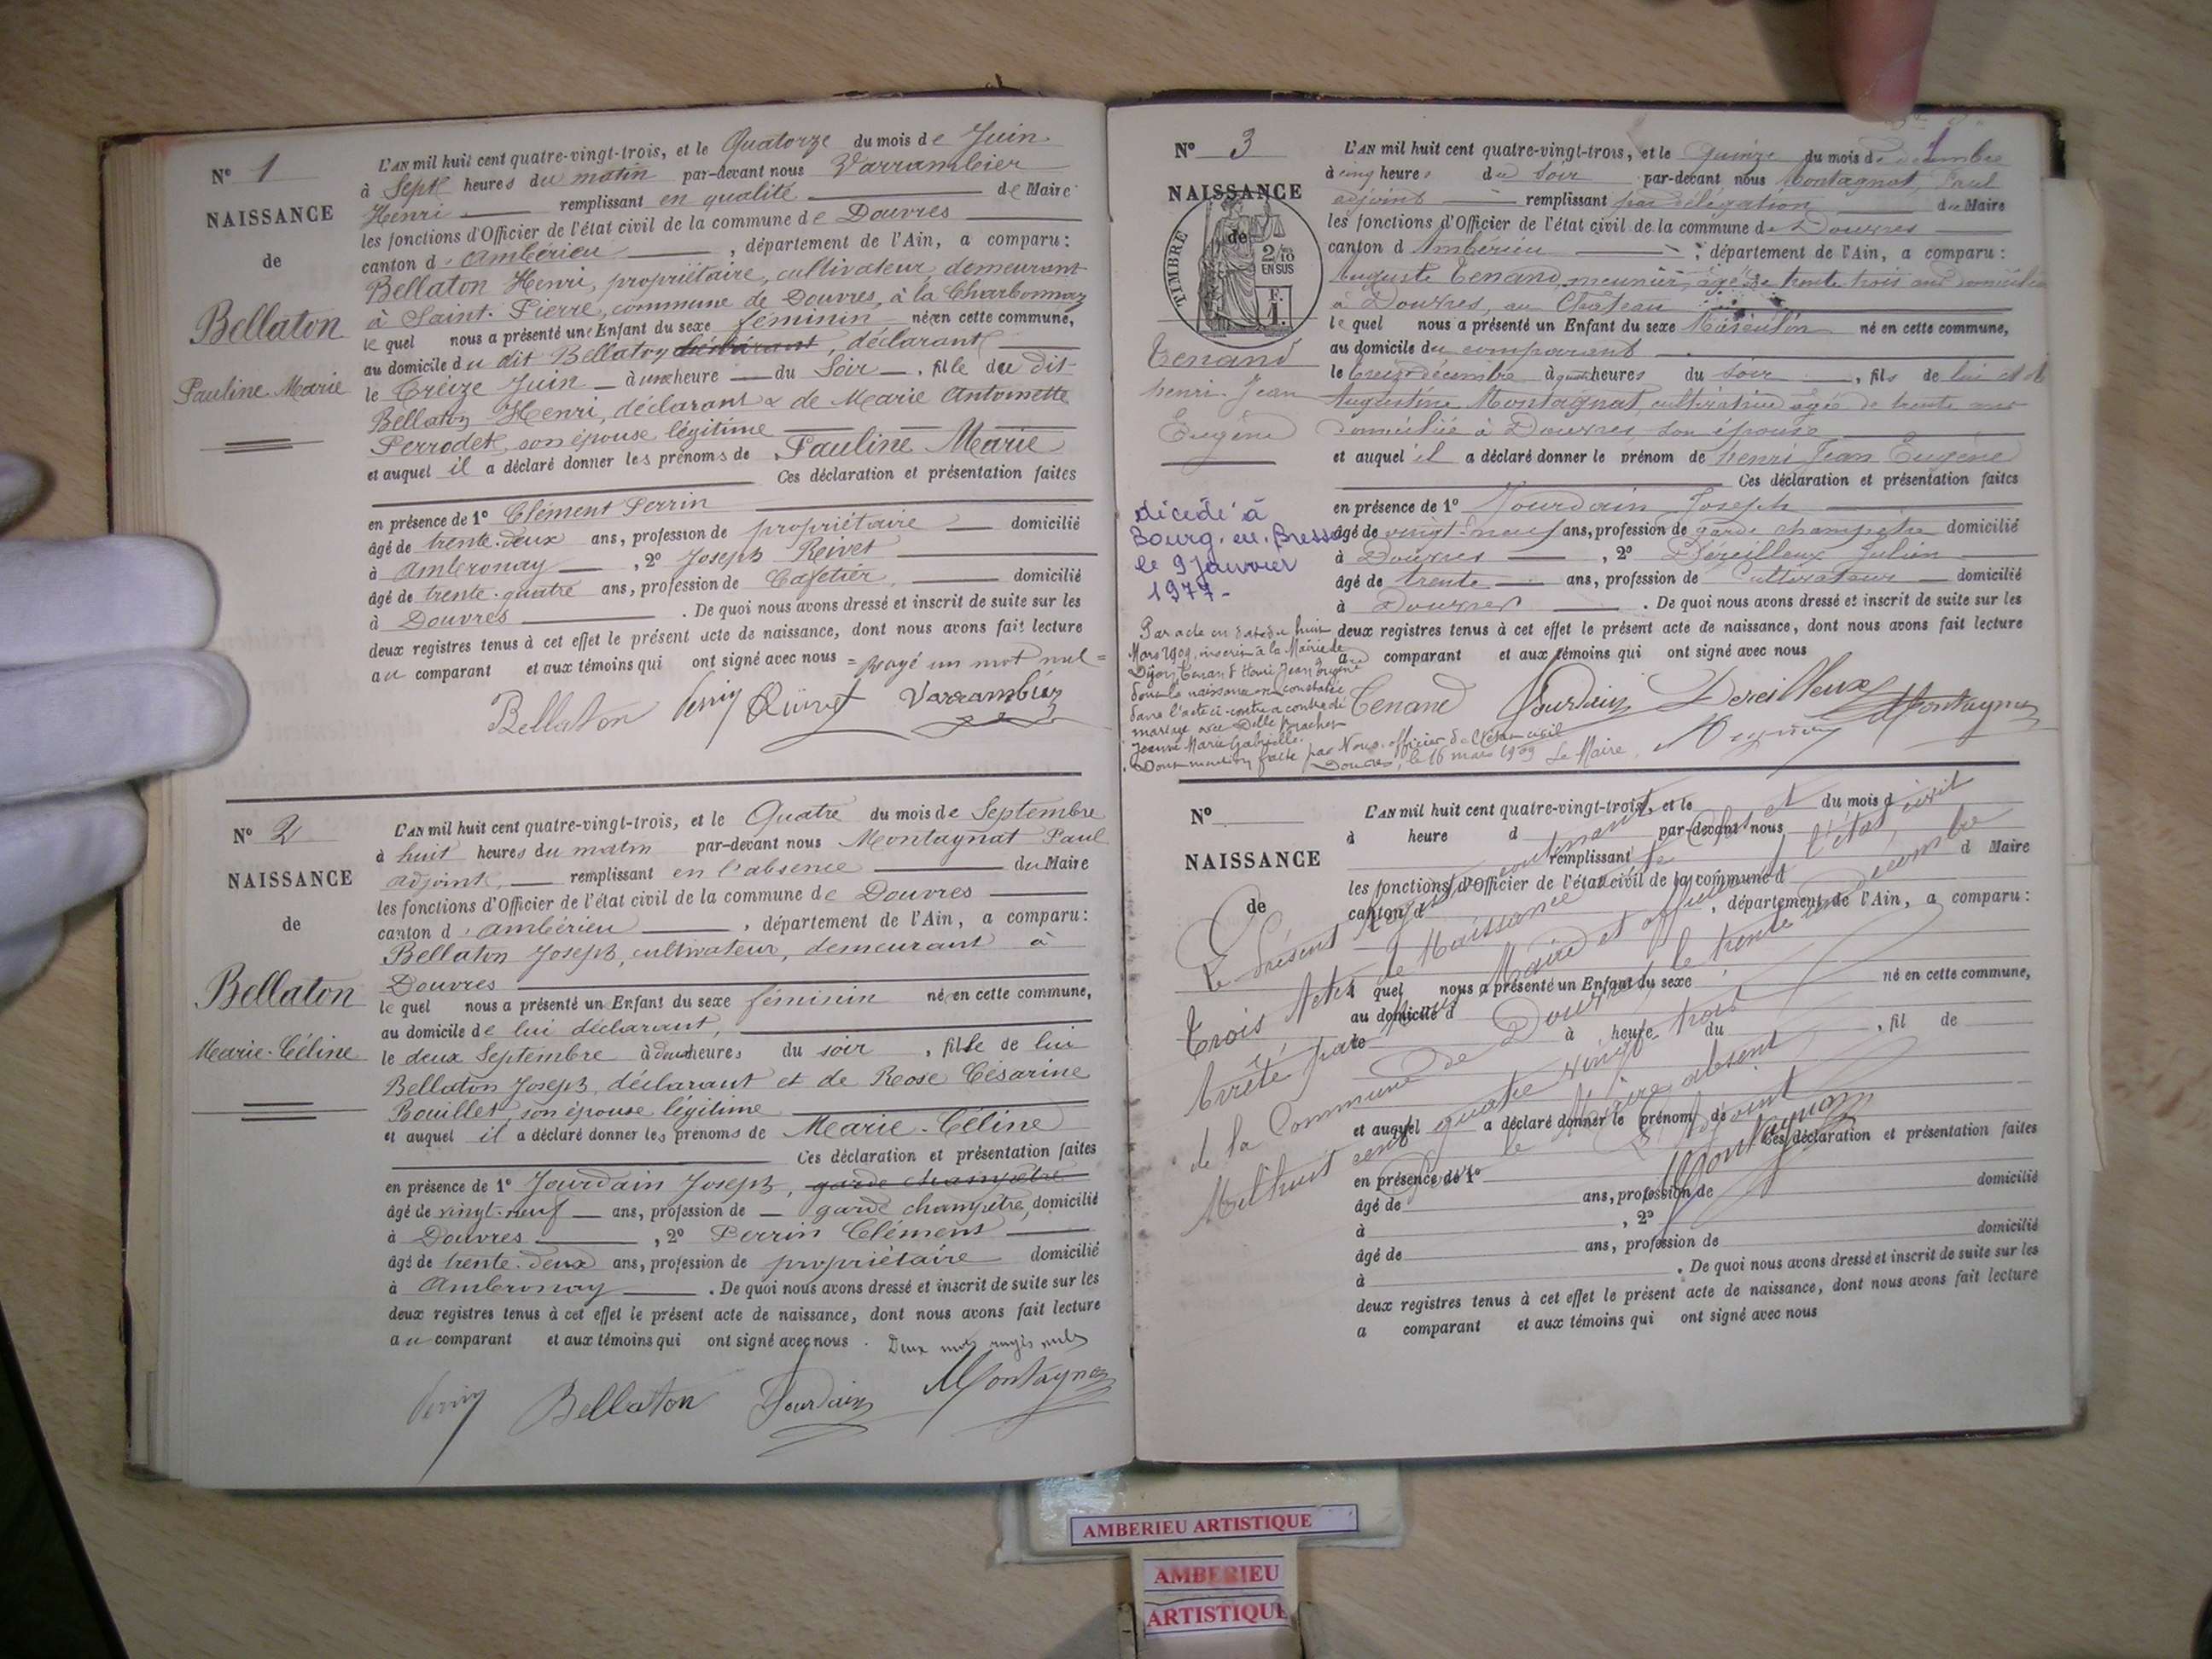 Nº 1
NAISSANCE
de
Bellaton
Pauline Marie
L'AN mil huit cent quatre-vingt-trois, et le Quatorze du mois de Juin
à Sept heures du matin par-devant nous Varrambier
Henri remplissant en qualité de Maire
les fonctions d'Officier de l'état civil de la commune de Douvres
canton d'Ambérieu, département de l'Ain, a comparu:
Bellaton Henri, propriétaire, cultivateur, demeurant
à Saint-Pierre, commune de Douvres, à la Charbonnaz
le quel nous a présenté une Enfant du sexe féminin née en cette commune,
au domicile du dit Bellaton, déclarant
le Treize Juin à une heure du Soir, fille du dit
Bellaton Henri, déclarant & de Marie Antoinette
Perrodet, son épouse légitime
et auquel il a déclaré donner les prénoms de Pauline Marie
Ces déclaration et présentation faites
en présence de 1º Clément Perrin
âgé de trente-deux ans, profession de propriétaire domicilié
à Ambronay, 2º Joseph Reivet
âgé de trente-quatre ans, profession de Cafetier, domicilié
à Douvres. De quoi nous avons dressé et inscrit de suite sur les
deux registres tenus à cet effet le présent acte de naissance, dont nous avons fait lecture
au comparant et aux témoins qui ont signé avec nous = Rayé un mot nul =
Bellaton Perrin Varrambier
Nº 2
NAISSANCE
de
Bellaton
Marie-Céline
L'AN mil huit cent quatre-vingt-trois, et le Quatre du mois de Septembre
à huit heures du matin par-devant nous Montagnat Paul
adjoint, remplissant en l'absence du Maire
les fonctions d'Officier de l'état civil de la commune de Douvres
canton d'Ambérieu, département de l'Ain, a comparu:
Bellaton Joseph, cultivateur, demeurant à
Douvres
le quel nous a présenté un Enfant du sexe féminin née en cette commune,
au domicile de lui déclarant,
le deux Septembre à deux heures du soir, fille de lui
Bellaton Joseph, déclarant et de Rose Césarine
Bouillet, son épouse légitime
et auquel il a déclaré donner les prénoms de Marie-Céline
Ces déclaration et présentation faites
en présence de 1º Jourdain Joseph, garde champêtre
âgé de vingt-neuf ans, profession de garde champêtre, domicilié
à Douvres, 2º Perrin Clément
âgé de trente-deux ans, profession de propriétaire domicilié
à Ambronay. De quoi nous avons dressé et inscrit de suite sur les
deux registres tenus à cet effet le présent acte de naissance, dont nous avons fait lecture
au comparant et aux témoins qui ont signé avec nous. Deux mots rayés nuls
Perrin Bellaton Jourdain Montagnat
Nº 3
NAISSANCE
de
TIMBRE
2/10
EN SUS
F.
1.
Tenand
henri Jean
Eugène
décédé à
Bourg-en-Bresse
le 9 janvier
1977-
Par acte en date du huit
Mars 1909, inscrit à la Mairie de
Dijon, Tenand Henri Jean Eugène
dont la naissance est constatée
dans l'acte ci-contre a contracté
mariage avec Delle
Jeanne Marie Gabrielle.
Dont mention faite par Nous officier de l'état civil
Douvres, le 16 mars 1909 Le Maire,
L'AN mil huit cent quatre-vingt-trois, et le quinze du mois de décembre
à cinq heures du soir par-devant nous Montagnat, Paul
adjoint remplissant par délégation du Maire
les fonctions d'Officier de l'état civil de la commune de Douvres
canton d'Ambérieu, département de l'Ain, a comparu:
Auguste Tenand, meunier, âgé de trente trois ans domicilié
à Douvres, au Château
le quel nous a présenté un Enfant du sexe Masculin né en cette commune,
au domicile du comparant
le treize décembre à quatre heures du soir, fils de lui et de
Augustine Montagnat, cultivatrice âgée de trente ans
domiciliée à Douvres, son épouse
et auquel il a déclaré donner le prénom de henri Jean Eugène
Ces déclaration et présentation faites
en présence de 1º Jourdain Joseph
âgé de vingt-neuf ans, profession de garde champêtre domicilié
à Douvres, 2º Déreilleux Julien
âgé de trente ans, profession de Cultivateur domicilié
à Douvres. De quoi nous avons dressé et inscrit de suite sur les
deux registres tenus à cet effet le présent acte de naissance, dont nous avons fait lecture
au comparant et aux témoins qui ont signé avec nous
Tenand Jourdain Dereilleux Montagnat
Nº
NAISSANCE
de
L'AN mil huit cent quatre-vingt-trois, et le du mois d
à heure d par-devant nous
remplissant d Maire
les fonctions d'Officier de l'état civil de la commune d
canton d, département de l'Ain, a comparu:
quel nous a présenté un Enfant du sexe né en cette commune,
au domicile d
le à heure du, fil de
et auquel a déclaré donner le prénom de
Ces déclaration et présentation faites
en présence de 1º
âgé de ans, profession de domicilié
à, 2º
âgé de ans, profession de domicilié
à. De quoi nous avons dressé et inscrit de suite sur les
deux registres tenus à cet effet le présent acte de naissance, dont nous avons fait lecture
a comparant et aux témoins qui ont signé avec nous
Le Présent Registre contenant
Trois Actes de Naissance a été Clos et
Arrêté par Nous Maire et officier de l'état civil
de la Commune de Douvres, le trente un Décembre
Mil huit cent quatre vingt trois
Pour le Maire absent
L'Adjoint
Montagnat
AMBERIEU ARTISTIQUE
AMBERIEU
ARTISTIQUE